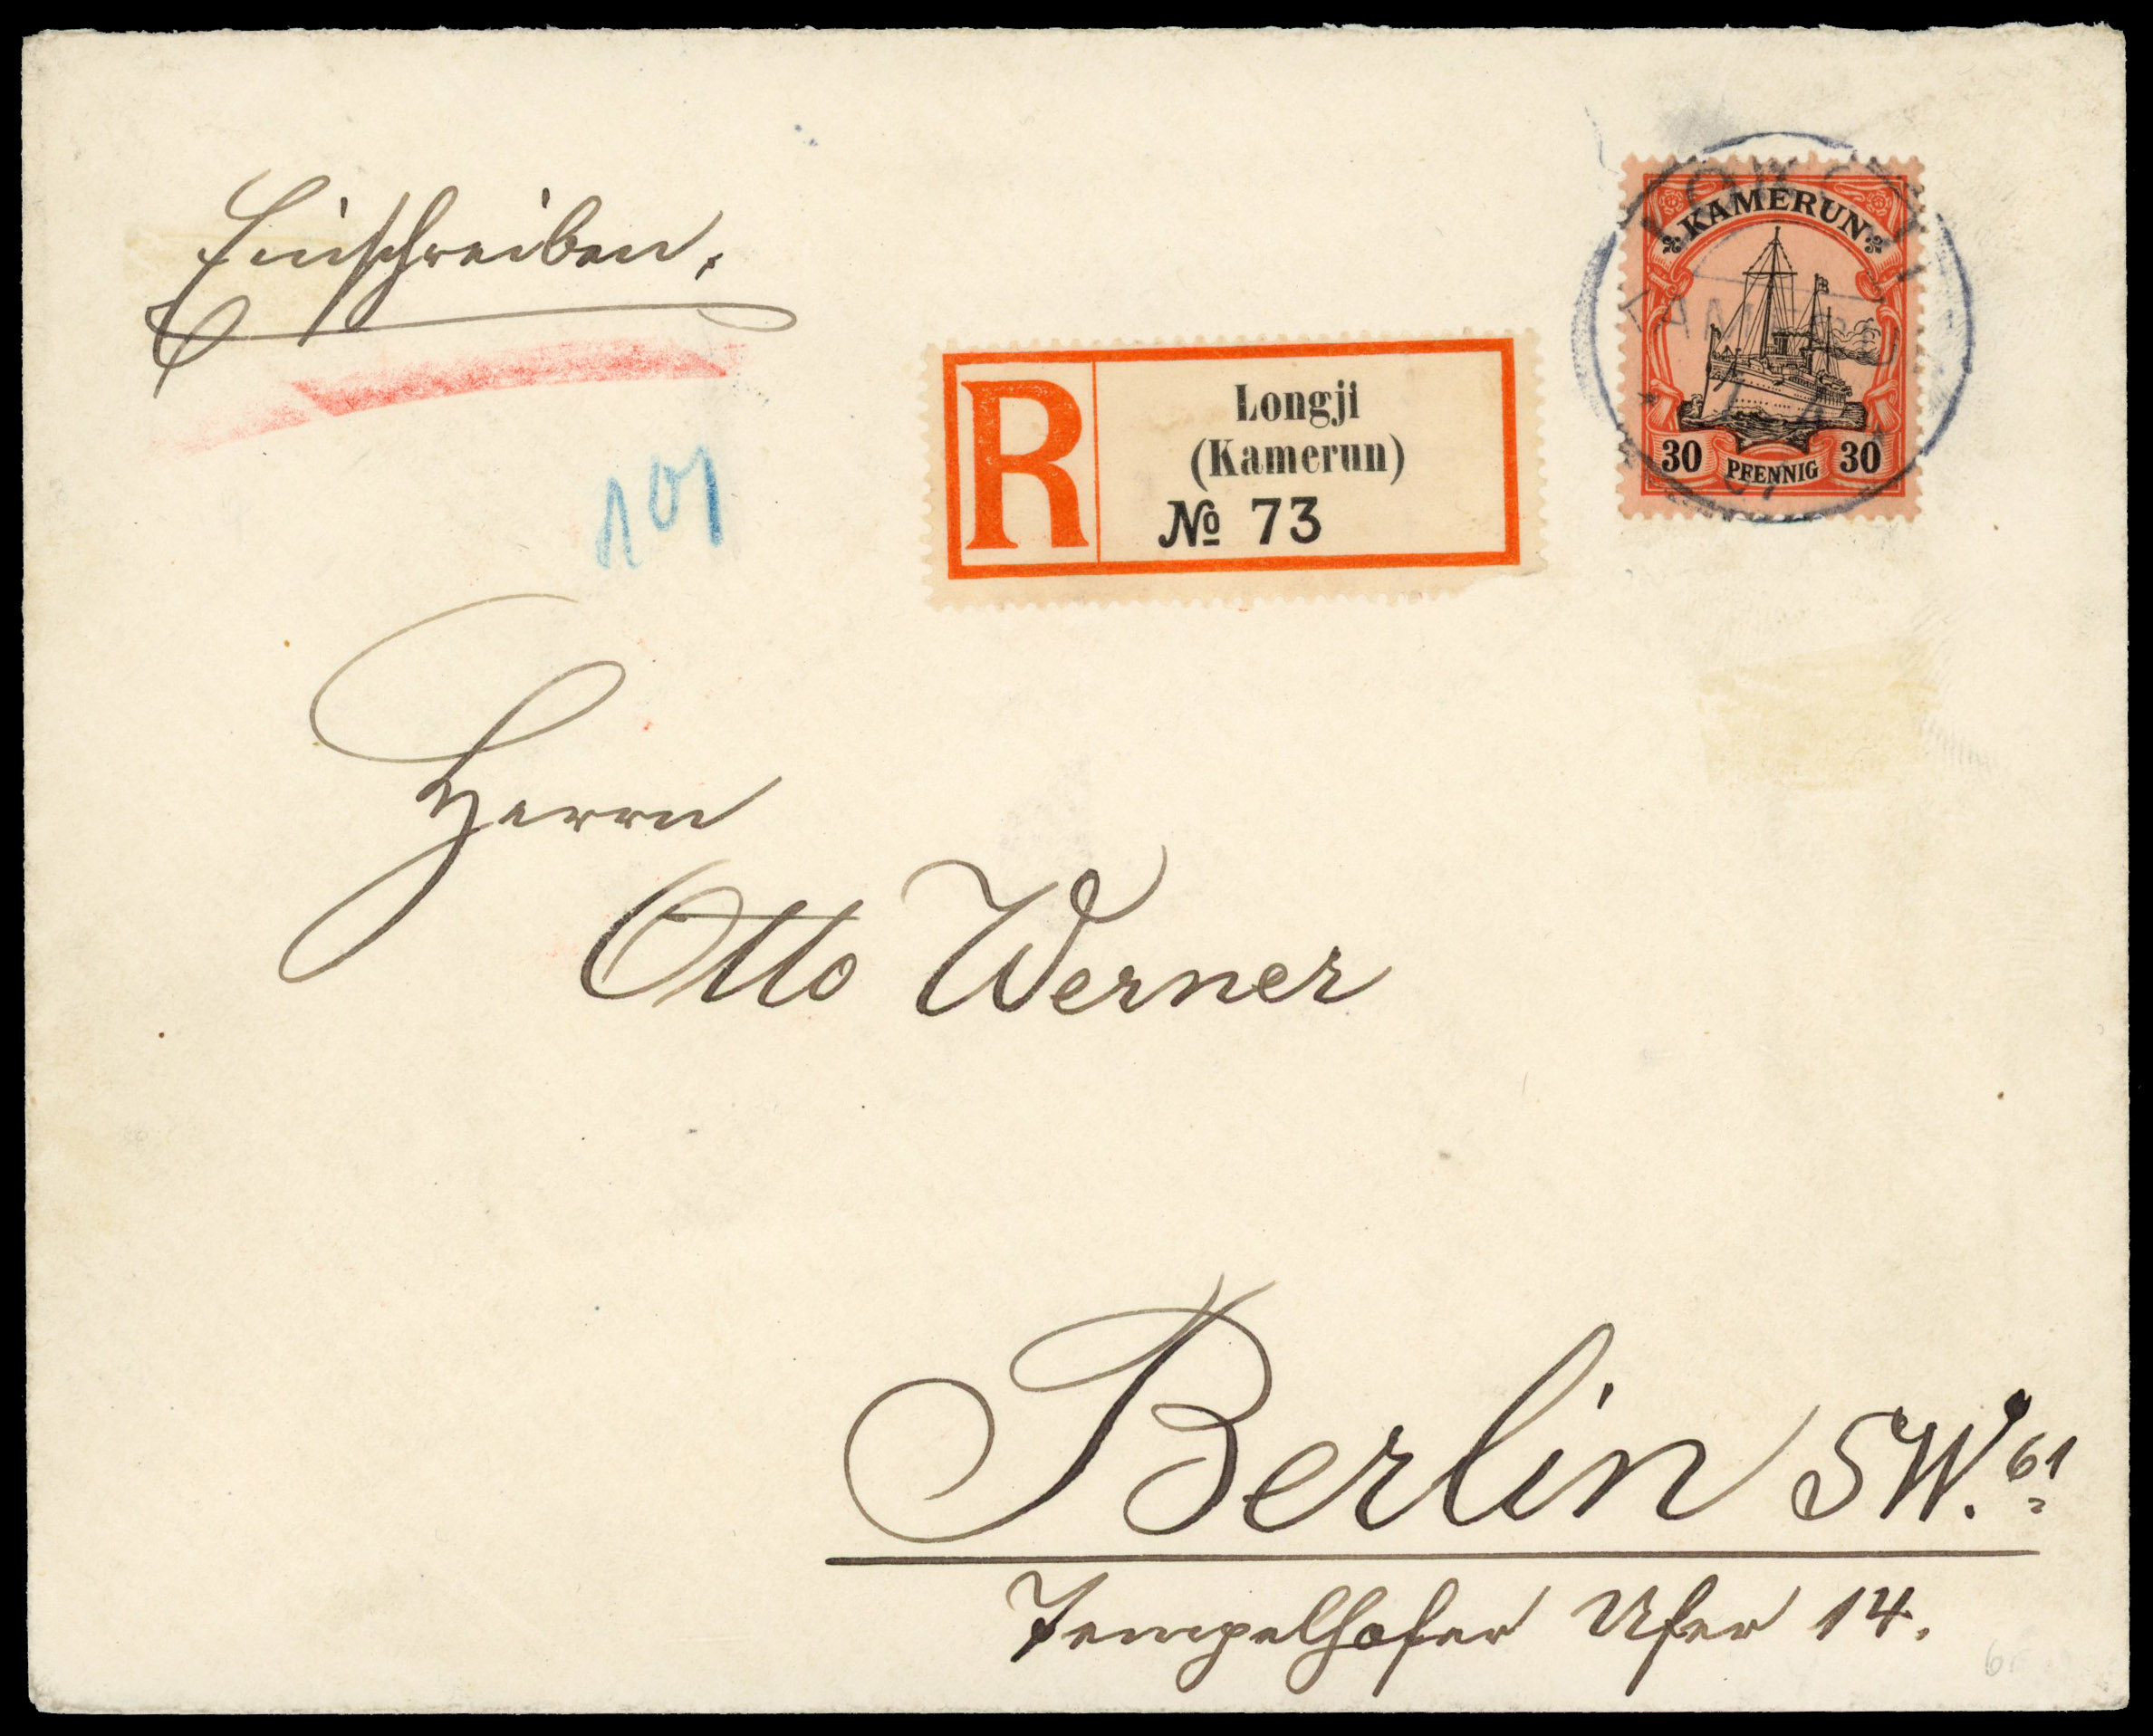 Einschreiben.
101
R
Longji
(Kamerun)
№ 73
KAMERUN
30 PFENNIG 30
Herrn
Otto Werner
Berlin SW. 61
Tempelhofer Ufer 14.